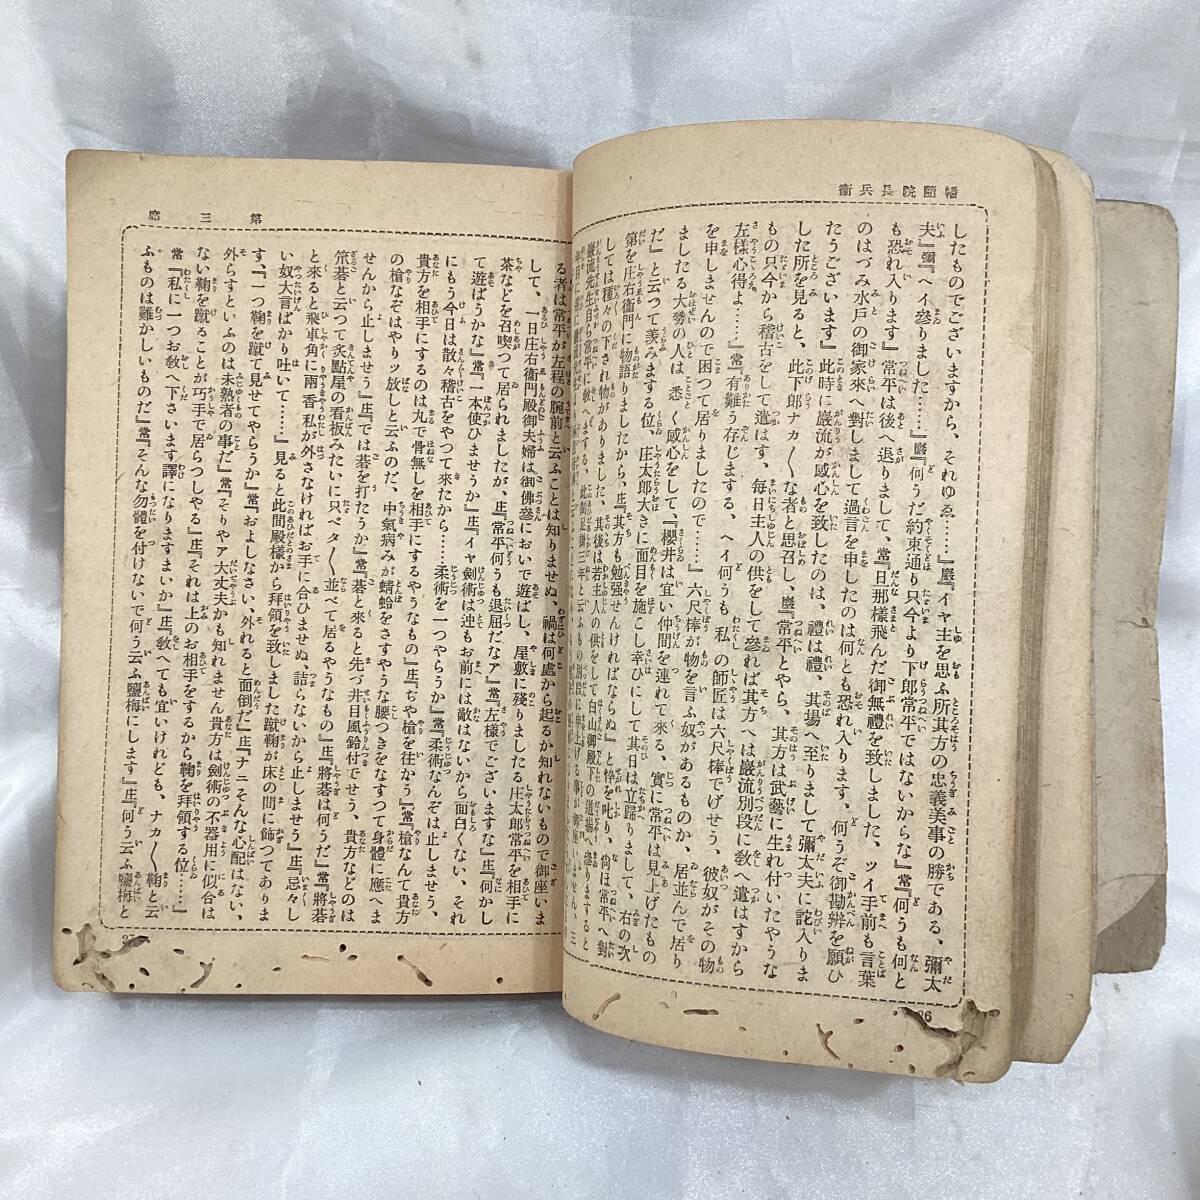 幡隨院長兵衛
したものでございますから、それゆゑ……』巖『イヤ主を思ふ所其方の忠義美事の勝である、彌太
夫』彌『ヘイ參りました……』巖『何うだ約束通り只今より下郎常平ではないからな』常『何うも何と
も恐れ入ります』常平は後へ退りまして、常『旦那様飛んだ御無禮を致しました、ツイ手前も言葉
のはづみ水戸の御家來へ對しまして過言を申したのは何とも恐れ入ります、何うぞ御勘辨を願ひ
たうございます』此時に巖流が感心を致したのは、禮は禮、其場へ至りまして彌太夫に詫入りま
した所を見ると、此下郎ナカ〳〵な者と思召し、巖『常平とやら、其方は武藝に生れ付いたやうな
もの只今から稽古をして遣はす、毎日主人の供をして參れば其方へは巖流別段に敎へ遣はすから
左様心得よ……』常『有難う存じまする、ヘイ何うも私の師匠は六尺棒でげせう、彼奴がその物
を申しませんので困つて居りましたので……』六尺棒が物を言ふ奴があるものか、居並んで居り
ましたる大勢の人は悉く感心をして、『櫻井は宜い仲間を連れて來る、實に常平は見上げたもの
だ』と云つて羨みまする位、庄太郎大きに面目を施こし幸ひにして其日は立歸りまして、右の次
第を庄右衞門に物語りましたから、庄『其方も勉强せんければならぬ』と悴を叱り、尙は常平へ對
しては種々の下され物がありました、其後は若主人の供をして白山御殿下の道場へ參りますると
巖流先生自ら常平に敎へまする、此
26
第三席
る者は常平が左程の腕前と云ふことは知りませぬ、禍は何處から起るか知れないもので御座いま
して、一日庄右衞門殿御夫婦は御佛參においで遊ばし、屋敷に殘りましたる庄太郎常平を相手に
茶などを召喫つて居られましたが、庄『常平何うも退屈だなア』常『左様でございますな』庄『何かし
て遊ばうかな』常『一本使ひませうか』庄『イヤ劍術は迚もお前には敵はないから面白くない、それ
にもう今日は散々稽古をやつて來たから……柔術を一つやらうか』常『柔術なんぞは止しませう、
貴方を相手にするのは丸で骨無しを相手にするやうなもの』庄『ぢや槍を往かう』常『槍なんて貴方
の槍なぞはやりッ放しと云ふのだ、中氣病みが蜻蛉をさすやうな腰つきをなすつて身體に應へま
せんから止しませう』庄『では碁を打たうか』常『碁と來ると先づ井目風鈴付でせう、貴方などのは
笊碁と云つて炙點屋の看板みたいに只ベタ〳〵並べて居るやうなもの』庄『將碁は何うだ』常『將碁
と來ると飛車角に兩香私が外さなければお手に合ひませぬ、詰らないから止しませう』庄『忌々し
い奴大言ばかり吐いて……』見ると此間殿様から拜領を致しました蹴鞠が床の間に飾つてありま
す、『一つ鞠を蹴て見せてやらうか』常『およしなさい、外れると面倒だ』庄『ナニそんな心配はない、
外らすといふのは未熟者の事だ』常『そりやア大丈夫かも知れません貴方は劍術の不器用に似合は
ない鞠を蹴ることが巧手で居らつしやる』庄『それは上のお相手をするから鞠を拜領する位……』
常『私に一つお敎へ下さいます譯になりますまいか』庄『敎へても宜いけれども、ナカ〳〵鞠と云
ふものは難かしいものだ』常『そんな勿體を付けないで何う云ふ鹽梅にします』庄『何う云ふ鹽梅と
27